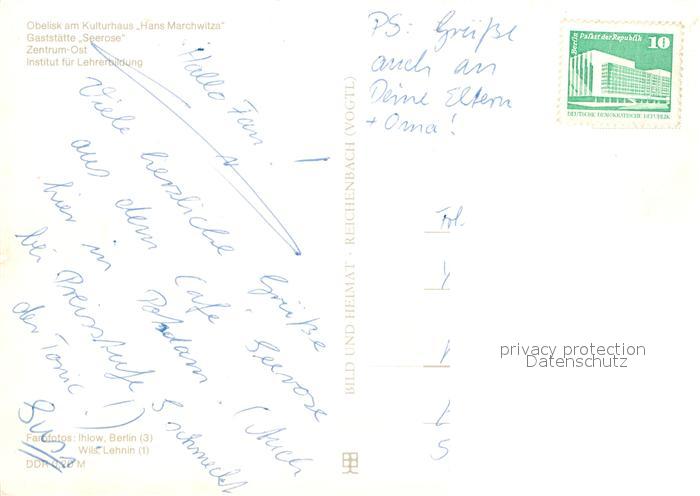 Obelisk am Kulturhaus „Hans Marchwitza"
Gaststätte „Seerose"
Zentrum-Ost
Institut für Lehrerbildung
Hallo Fan!
Viele herzliche Grüße
aus dem Cafe Seerose
hier in Potsdam. (Auch
bei Preisstufe S schmeckt
der Tonic!)
Susi
Farbfotos: Ihlow, Berlin (3)
Wils, Lehnin (1)
DDR 0,20 M
BILD UND HEIMAT · REICHENBACH (VOGTL)
PS: Grüße
auch an
Deine Eltern
+ Oma!
Berlin Palast der Republik
10
DEUTSCHE DEMOKRATISCHE REPUBLIK
Frl.
privacy protection
Datenschutz